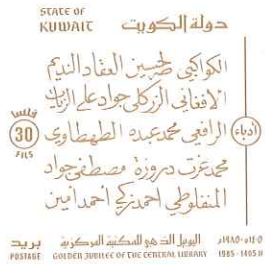 STATE OF
KUWAIT
دولة الكويت
الكواكبي طه حسين العقاد النديم
الافغاني الزركلي جواد علي الزيات
الرافعي محمد عبده الطهطاوي
محمد عزت دروزة مصطفى جواد
المنفلوطي احمد زكي احمد امين
فلسا
30
FILS
أدباء
بريد
POSTAGE
اليوبيل الذهبي للمكتبة المركزية
GOLDEN JUBILEE OF THE CENTRAL LIBRARY
١٤٠٥هـ-١٩٨٥م
1985-1405 H